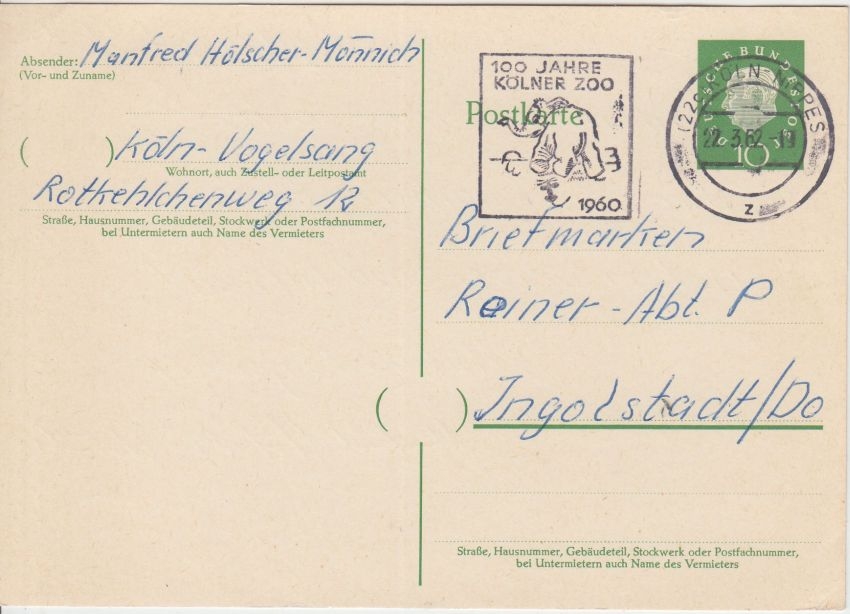 Absender: Manfred Hölscher-Mönnich
(Vor- und Zuname)
( ) Köln-Vogelsang
Wohnort, auch Zustell- oder Leitpostamt
Rotkehlchenweg 12
Straße, Hausnummer, Gebäudeteil, Stockwerk oder Postfachnummer,
bei Untermietern auch Name des Vermieters
100 JAHRE
KÖLNER ZOO
1960
Postkarte
DEUTSCHE BUNDESPOST
10
(22c) KÖLN-NIPPES
22.3.62-19
z
Briefmarken
Reiner-Abt. P
( ) Ingolstadt/Do
Straße, Hausnummer, Gebäudeteil, Stockwerk oder Postfachnummer,
bei Untermietern auch Name des Vermieters